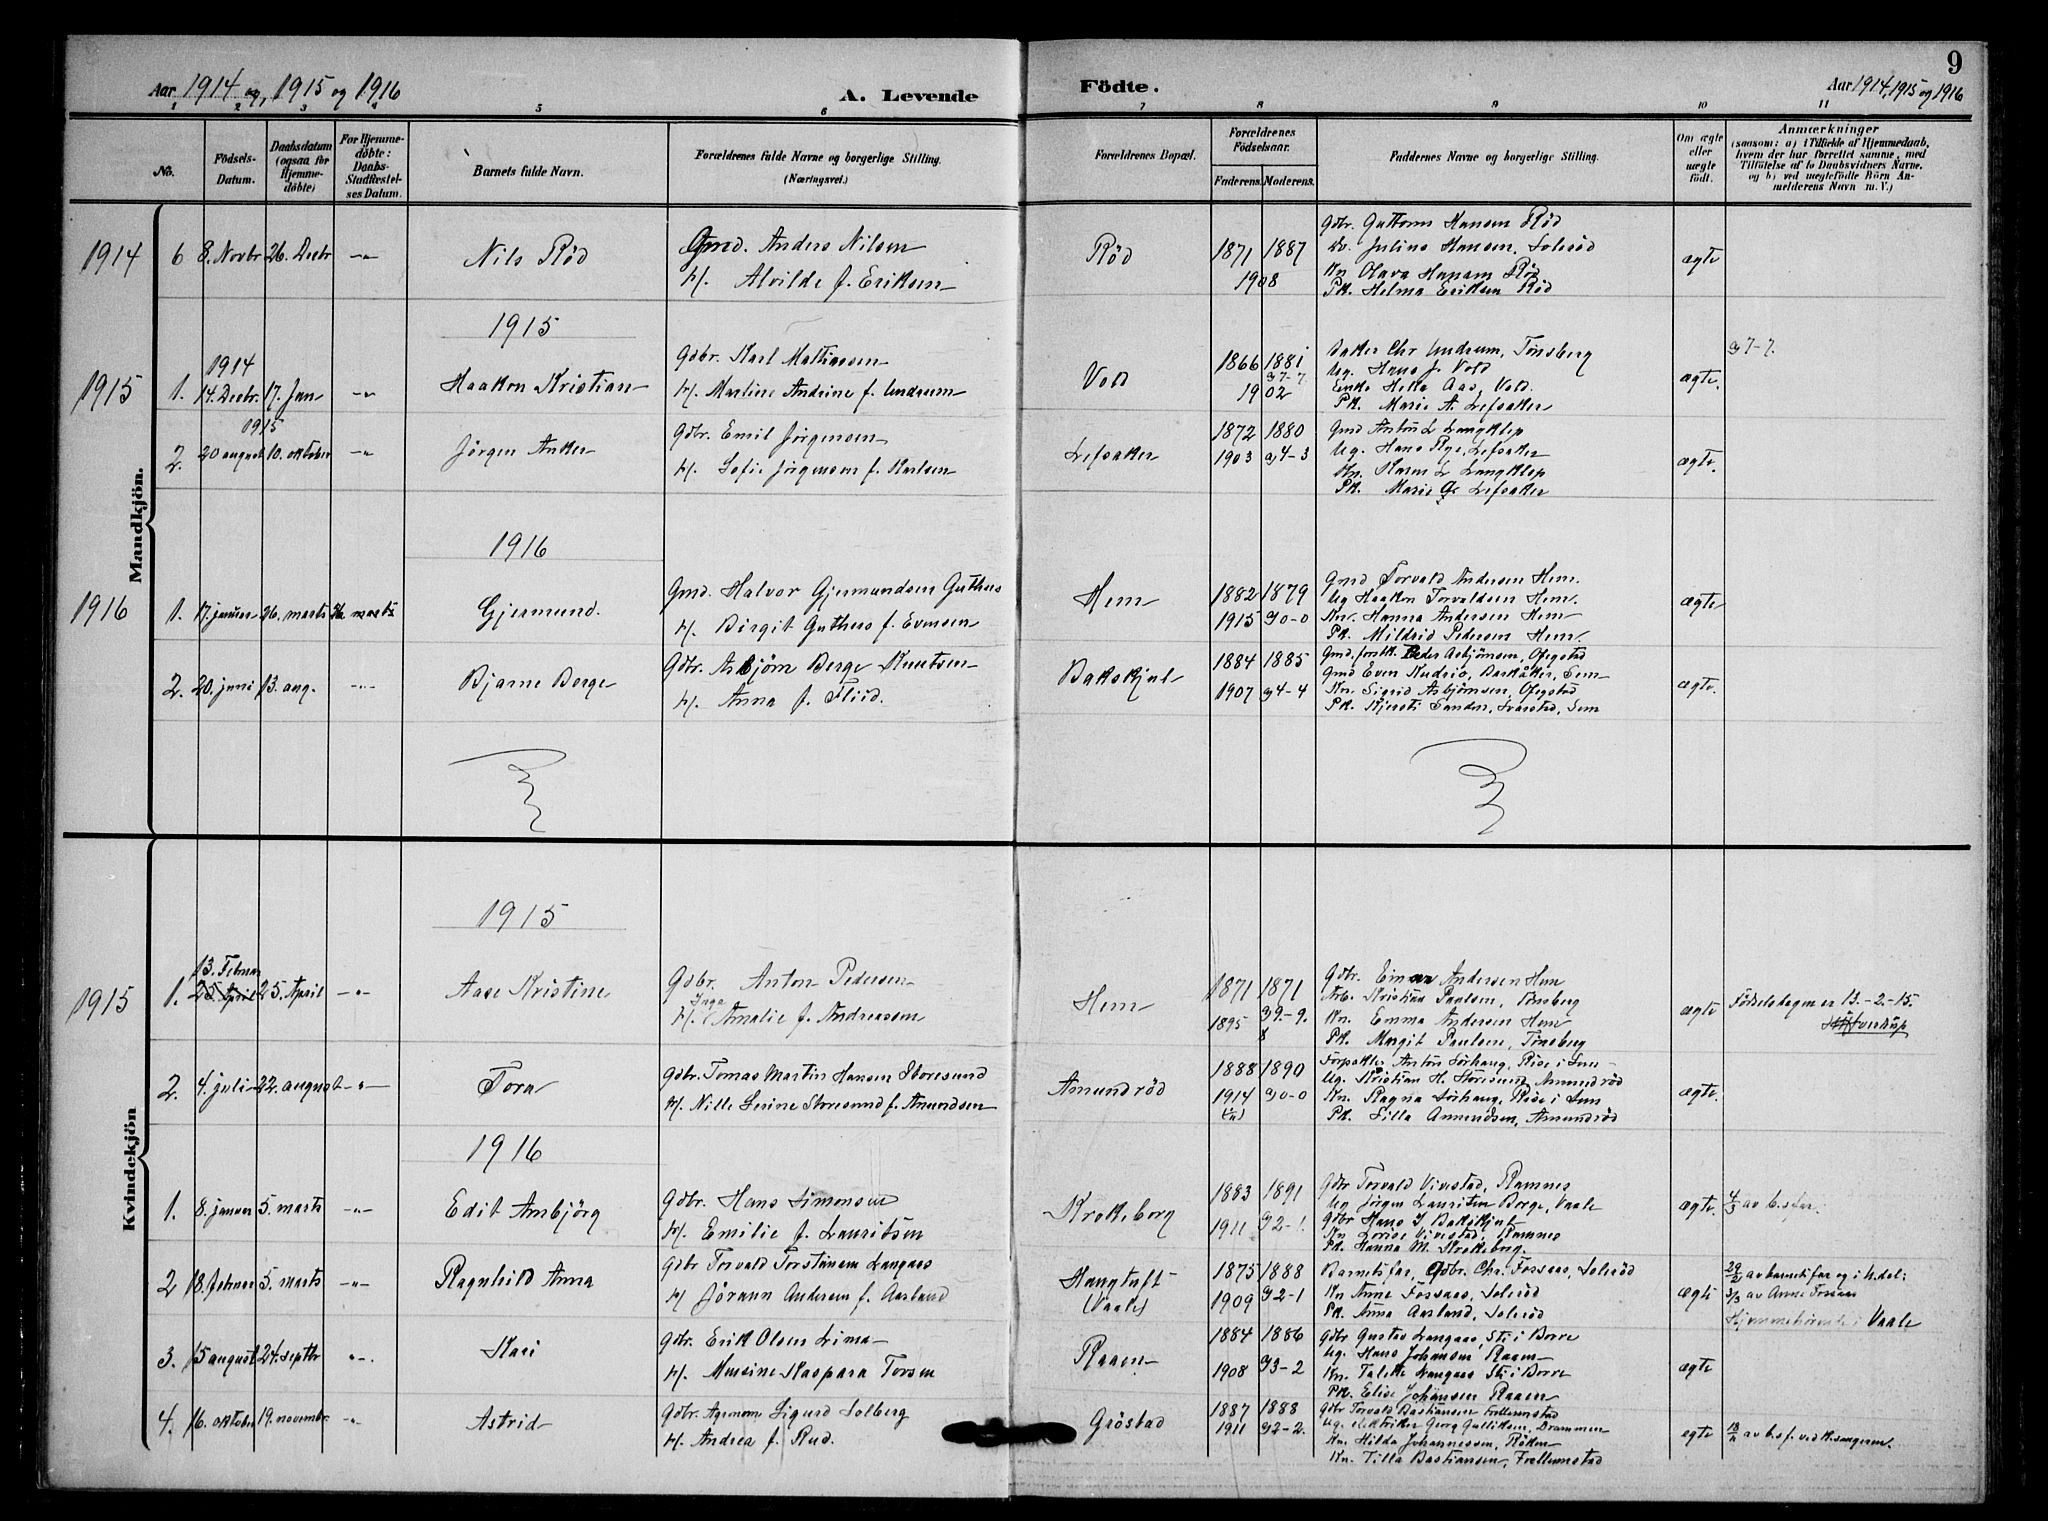 9
Aar 1914 og, 1915 og 1916
A. Levende Födte.
Aar 1914, 1915 og 1916
1 2 3 4 5 6 7 8 9 10 11
No.
Födsels-Datum.
Daabsdatum (ogsaa for Hjemmedöbte)
For Hjemmedöbte: Daabs-Stadfæstelses Datum.
Barnets fulde Navn.
Forældrenes fulde Navne og borgerlige Stilling. (Næringsvei.)
Forældrenes Bopæl.
Forældrenes Födselsaar.
Faderens. Moderens.
Faddernes Navne og borgerlige Stilling.
Om ægte eller uægte födt.
Anmærkninger
(saasom: a) i Tilfælde af Hjemmedaab, hvem der har forrettet samme, med Tilföielse af to Daabsvidners Navne, og b) ved uægtefödte Börn Anmelderens Navn m. V.)
Mandkjön.
1914
6 8. Novbr 26. Decbr -"- Nils Rød
Gmd. Anders Nilsen
H. Alvilde f. Eriksen
Rød
1871 1887
1908
Gbr. Guttorm Hansen Rød
Julius Hansen, Solerød
Kn Olava Hansen Rød
Pk. Helma Eriksen Rød
ægte
1915
1915
1. 1914 14. Decbr. 17. Jan 1915 -"- Haakon Kristian
Gdbr. Karl Mathiassen
H. Martine Andrine f. Undrum
Vold
1866 1881
37-7
1902
Baker Chr Undrum, Tønsberg
Ug. Hans J. Vold
Enke Helle Aas, Vold.
Pk. Marie A. Lefsaker
ægte.
37-7.
2. 20 august 10. oktober -"- Jørgen Anker
Gdbr. Emil Jørgensen
H. Sofie Jørgensen f. Karlsen
Lefsaker
1872 1880
1903 34-3
Gmd Anton L Langklep
Ug. Hans Rye, Lefsaker
Kn. Karen L Langklep
Pk. Marie G. Lefsaker
ægte.
1916
1916
1. 17. januar 26. marts 26 marts Gjermund.
Gmd. Halvor Gjermundsen Guthus
H. Birgit Guthus f. Evensen
Hem
1882 1879
1915 30-0
Gmd Torvald Andersen Hem.
Ug Haakon Torvaldsen Hem.
Kn. Hanna Andersen Hem
Pk. Mildrid Pedersen Hem.
ægte
2. 20. juni 13. aug. -"- Bjarne Berge
Gdbr. Asbjørn Berge Knutsen
H. Anna f. Fliid.
Bakskjul
1884 1885
1907 34-4
Gmd. Peder Asbjørnsen, Ofigstad
Gmd Even Kudrio, Barkåker, Sem
Kn. Sigrid Asbjørnsen, Ofigstad
Pk. Kjersti Sanden, Svarstad, Sem
ægte.
Kvindekjön
1915
1915
1. 13. Februar 25. April 25. April -"- Aase Kristine
Gdbr. Anton Pedersen
H. Inga Amalie f. Andreassen
Hem
1871 1871
1895 39-9.
8
Gdbr. Einar Andersen Hem
Arb. Kristian Paulsen, Tønsberg
Kn. Emma Andersen Hem
Pk. Margit Paulsen, Tønsberg
ægte
Fødselsdagen er 13.-2-15.
2. 4. juli 22. august -"- Tora
Gdbr. Tomas Martin Hansen Storesund
H. Nille Serine Storesund f. Amundsen
Amundrød
1888 1890
1914 30-0
Forpakter Anton Sørhaug, Rise i Sem
Ug. Kristian H. Storesund Amundrød
Kn. Ragna Sørhaug, Rise i Sem
Pk. Silla Amundsen, Amundrød
ægte.
1916
1. 8. januar 5. marts -"- Edit Ambjørg
Gdbr. Hans Simonsen
H. Emilie f. Lauritsen
Krokeborg
1883 1891
1911 32-1.
Gdbr Torvald Vivestad, Ramnes
Ug Jørgen Lauritsen Berge, Vaale
Gdbr Hans J Bakskjul
Kn Lovise Vivestad, Ramnes
Pk. Hanna M. Krokeborg.
ægte.
4/3 av b.s far.
2 18. februar 5. marts -"- Ragnhild Anna
Gdbr Torvald Torstensen Langaas
H Jørann Andersen f. Aasland
Haugtuft (Vaale)
1875 1888
1909 32-1
Barnets far, Gdbr. Chr. Fossaas, Solerød
Kn Anne Fossaas, Solerød
Pk. Anna Aasland, Solerød
ægte
29/2 av barnets far og i h. del:
3/3 av Anne Fossaas
Hjemmehørende i Vaale
3. 15 august 24. septbr -"- Kari
Gdbr. Erik Olsen Lima
H. Maurine Kaspara Torsen
Raaen
1884 1886
1908 33-2
Gdbr Gustav Langaas, Sti i Borre
Ug. Hans Johansen Raaen
Kn. Talette Langaas Sti i Borre
Pk. Elise Johansen Raaen
ægte
4. 16. oktober 19. novembr. -"- Astrid
Gdbr. Agronom Sigurd Solberg
H. Andrea f. Rud.
Grøstad
1887 1888
1911 32-2.
Gbr Torvald Bastiansen Frellumstad
Ug. elektriker Georg Gulliksen, Drammen
Kn. Hilda Johannessen, Røken
Kn. Tilla Bastiansen, Frellumstad
egte
18/11 av b.s f. ved k.sangeren.